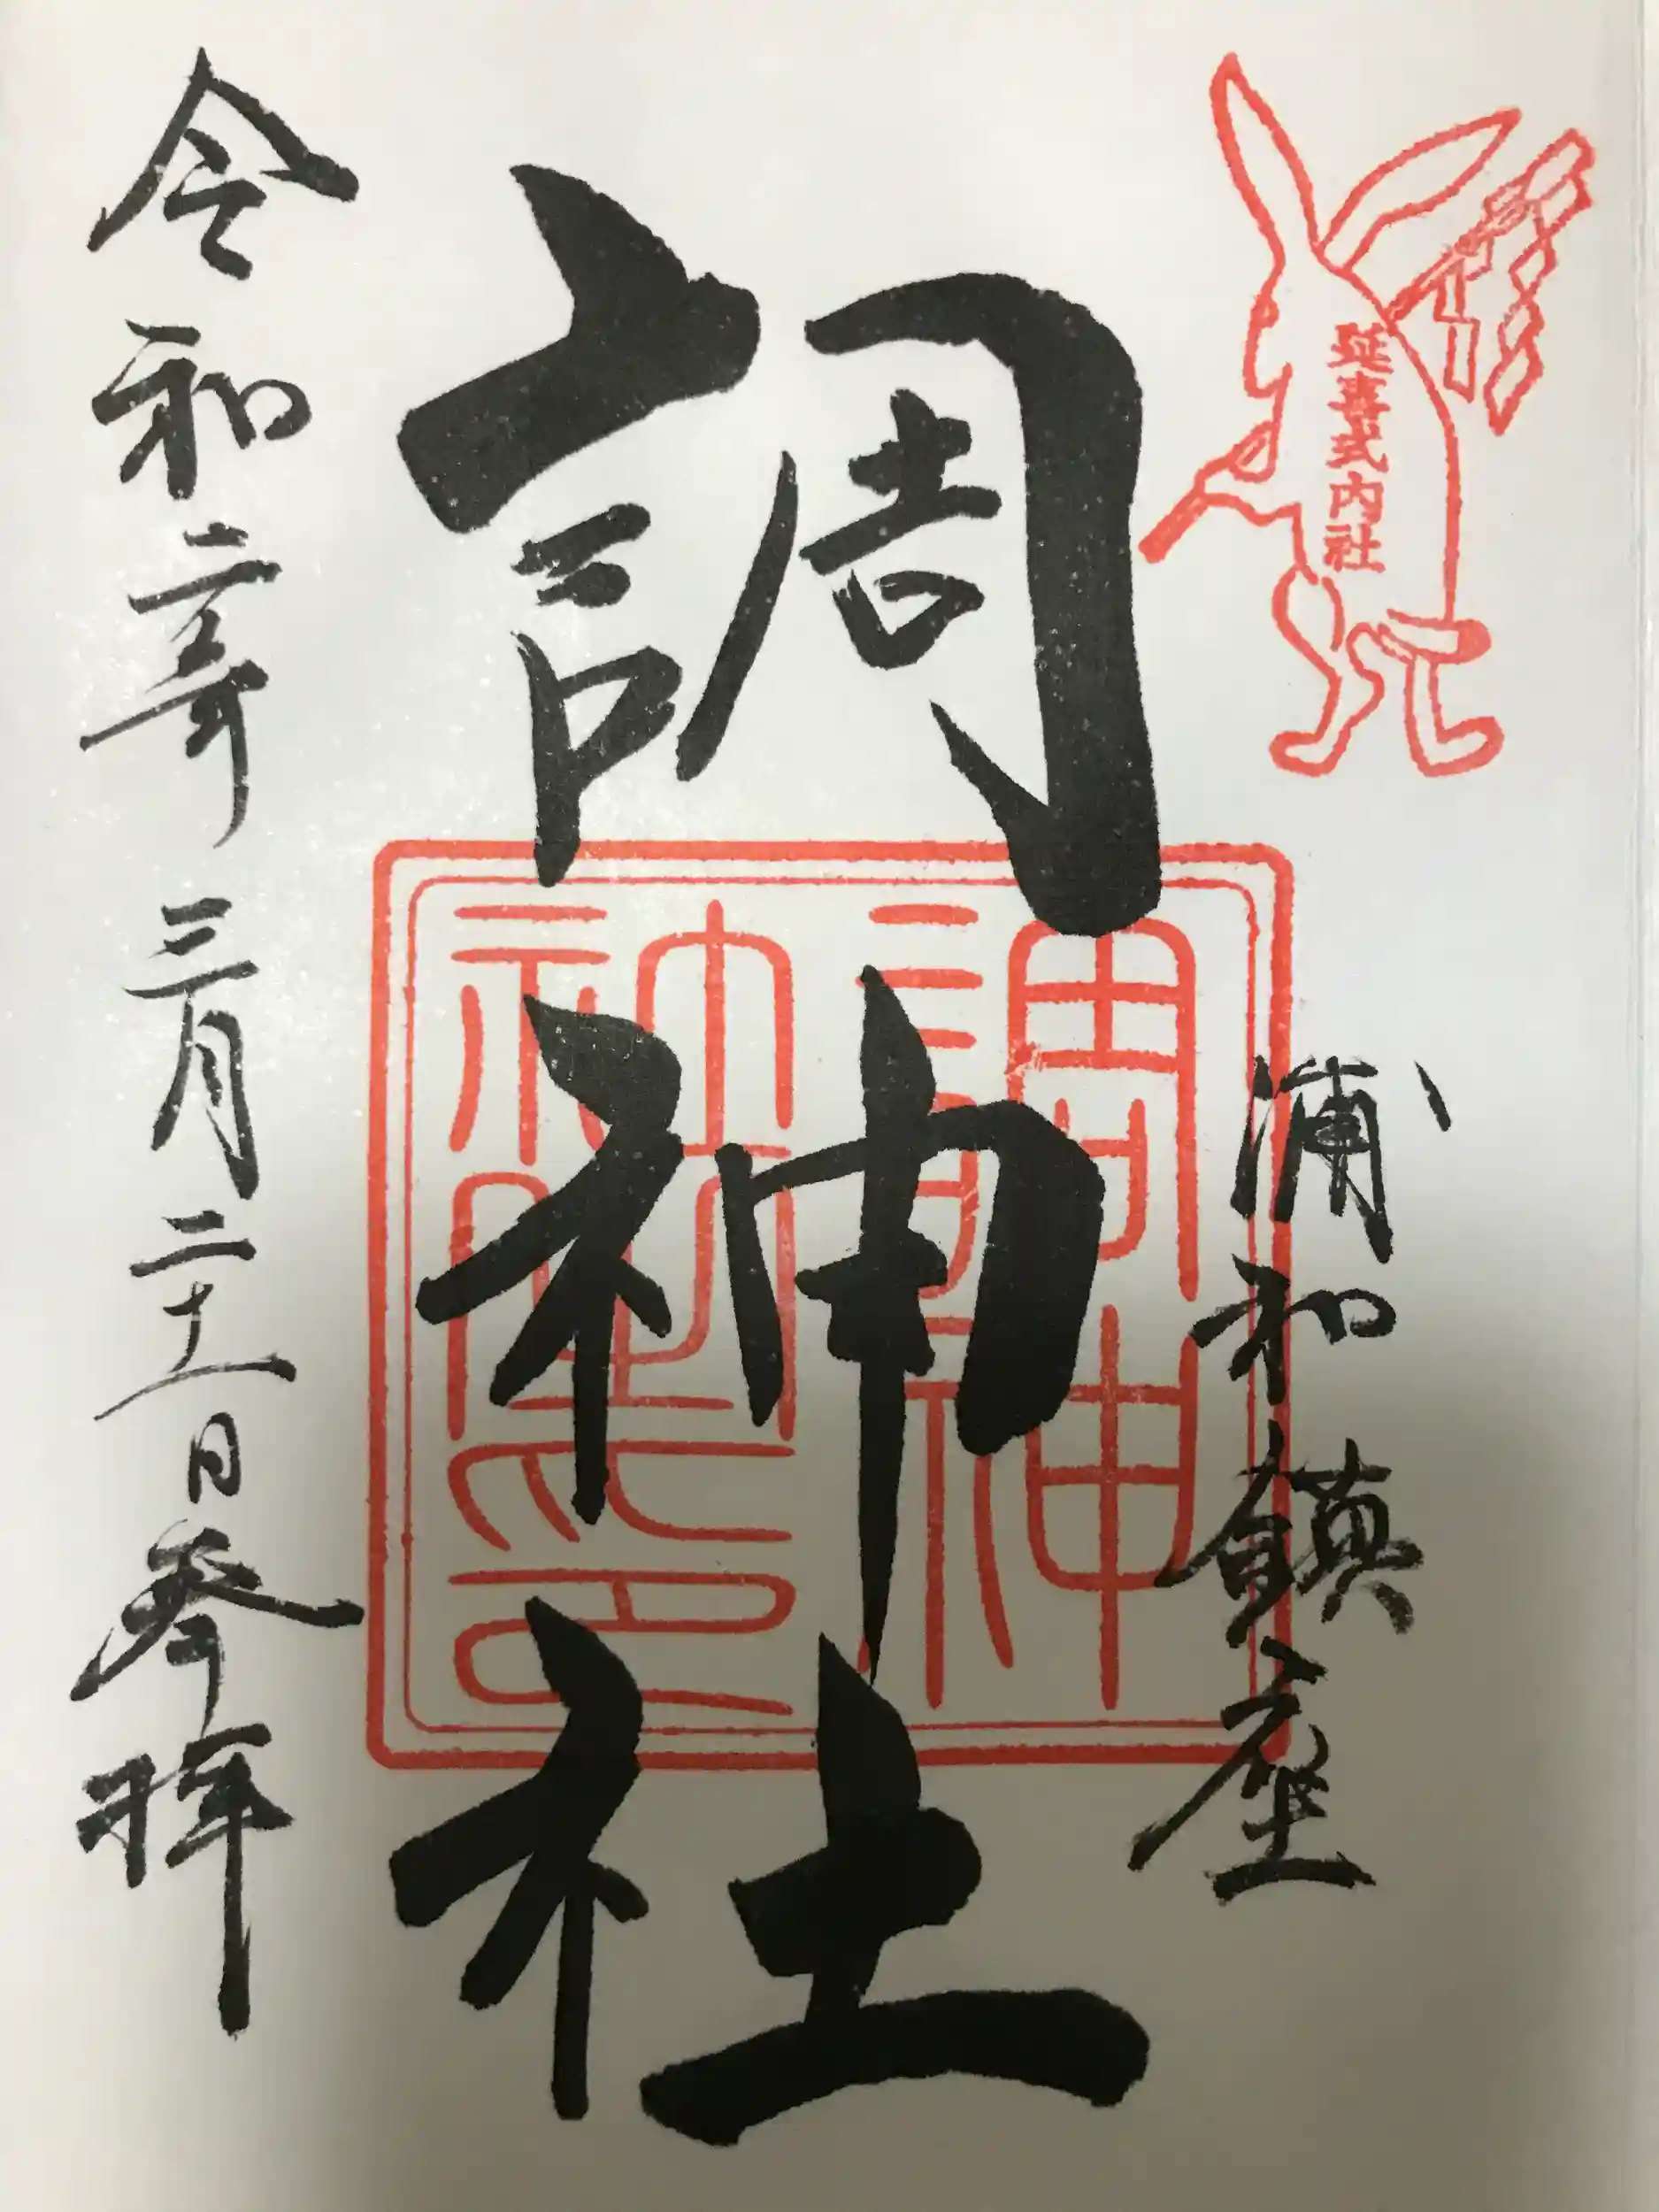 延喜式内社
浦和鎮座
調神社
調神
社之印
令和二年三月二十一日奉拝